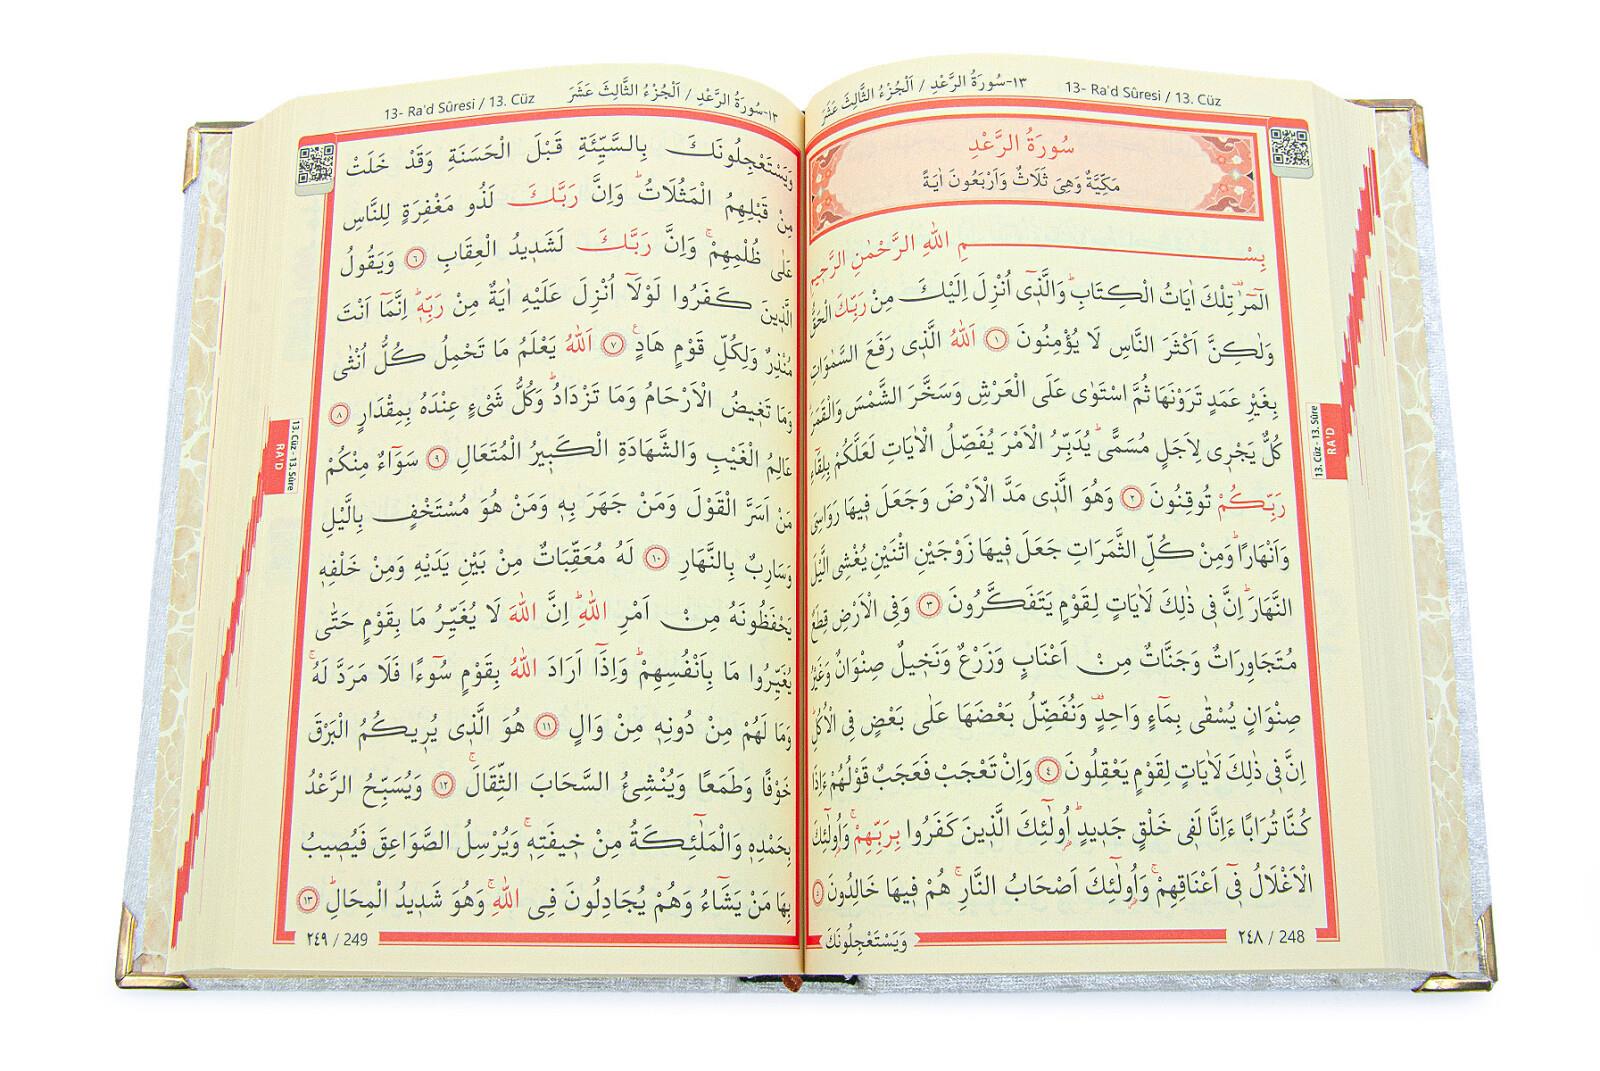 ١٣-سُورَةُ الرَّعْدِ / اَلْجُزْءُ الثَّالِثَ عَشَرَ
13- Ra'd Sûresi / 13. Cüz
سُورَةُ الرَّعْدِ
مَكِّيَّةٌ وَهِىَ ثَلَاثٌ وَاَرْبَعُونَ اٰيَةً
بِسْمِ اللّٰهِ الرَّحْمٰنِ الرَّح۪يمِ
الٓمٓرٰ۠ تِلْكَ اٰيَاتُ الْكِتَابِۜ وَالَّذ۪ٓى اُنْزِلَ اِلَيْكَ مِنْ رَبِّكَ الْحَقُّ
وَلٰكِنَّ اَكْثَرَ النَّاسِ لَا يُؤْمِنُونَ ١ اَللّٰهُ الَّذ۪ى رَفَعَ السَّمٰوَاتِ
بِغَيْرِ عَمَدٍ تَرَوْنَهَا ثُمَّ اسْتَوٰى عَلَى الْعَرْشِ وَسَخَّرَ الشَّمْسَ وَالْقَمَرَ
كُلٌّ يَجْر۪ى لِاَجَلٍ مُسَمًّىۜ يُدَبِّرُ الْاَمْرَ يُفَصِّلُ الْاٰيَاتِ لَعَلَّكُمْ بِلِقَٓاءِ
رَبِّكُمْ تُوقِنُونَ ٢ وَهُوَ الَّذ۪ى مَدَّ الْاَرْضَ وَجَعَلَ ف۪يهَا رَوَاسِىَ
وَاَنْهَارًاۜ وَمِنْ كُلِّ الثَّمَرَاتِ جَعَلَ ف۪يهَا زَوْجَيْنِ اثْنَيْنِ يُغْشِى الَّيْلَ
النَّهَارَۜ اِنَّ ف۪ى ذٰلِكَ لَاٰيَاتٍ لِقَوْمٍ يَتَفَكَّرُونَ ٣ وَفِى الْاَرْضِ قِطَعٌ
مُتَجَاوِرَاتٌ وَجَنَّاتٌ مِنْ اَعْنَابٍ وَزَرْعٌ وَنَخ۪يلٌ صِنْوَانٌ وَغَيْرُ
صِنْوَانٍ يُسْقٰى بِمَٓاءٍ وَاحِدٍ۠ وَنُفَضِّلُ بَعْضَهَا عَلٰى بَعْضٍ فِى الْاُكُلِۜ
اِنَّ ف۪ى ذٰلِكَ لَاٰيَاتٍ لِقَوْمٍ يَعْقِلُونَ ٤ وَاِنْ تَعْجَبْ فَعَجَبٌ قَوْلُهُمْ ءَاِذَا
كُنَّا تُرَابًا ءَاِنَّا لَف۪ى خَلْقٍ جَد۪يدٍۜ اُو۬لٰٓئِكَ الَّذ۪ينَ كَفَرُوا بِرَبِّهِمْۚ وَاُو۬لٰٓئِكَ
الْاَغْلَالُ ف۪ٓى اَعْنَاقِهِمْۚ وَاُو۬لٰٓئِكَ اَصْحَابُ النَّارِۚ هُمْ ف۪يهَا خَالِدُونَ
٢٤٨ / 248
وَيَسْتَعْجِلُونَكَ
13. Cüz - 13. Sûre
RA'D
١٣-سُورَةُ الرَّعْدِ / اَلْجُزْءُ الثَّالِثَ عَشَرَ
13- Ra'd Sûresi / 13. Cüz
وَيَسْتَعْجِلُونَكَ بِالسَّيِّئَةِ قَبْلَ الْحَسَنَةِ وَقَدْ خَلَتْ
مِنْ قَبْلِهِمُ الْمَثُلَاتُۜ وَاِنَّ رَبَّكَ لَذُو مَغْفِرَةٍ لِلنَّاسِ
عَلٰى ظُلْمِهِمْۚ وَاِنَّ رَبَّكَ لَشَد۪يدُ الْعِقَابِ ٦ وَيَقُولُ
الَّذ۪ينَ كَفَرُوا لَوْلَٓا اُنْزِلَ عَلَيْهِ اٰيَةٌ مِنْ رَبِّه۪ۜ اِنَّمَٓا اَنْتَ
مُنْذِرٌ وَلِكُلِّ قَوْمٍ هَادٍ۟ ٧ اَللّٰهُ يَعْلَمُ مَا تَحْمِلُ كُلُّ اُنْثٰى
وَمَا تَغ۪يضُ الْاَرْحَامُ وَمَا تَزْدَادُۜ وَكُلُّ شَىْءٍ عِنْدَهُ بِمِقْدَارٍ ٨
عَالِمُ الْغَيْبِ وَالشَّهَادَةِ الْكَب۪يرُ الْمُتَعَالِ ٩ سَوَٓاءٌ مِنْكُمْ
مَنْ اَسَرَّ الْقَوْلَ وَمَنْ جَهَرَ بِه۪ وَمَنْ هُوَ مُسْتَخْفٍ بِالَّيْلِ
وَسَارِبٌ بِالنَّهَارِ ١٠ لَهُ مُعَقِّبَاتٌ مِنْ بَيْنِ يَدَيْهِ وَمِنْ خَلْفِه۪
يَحْفَظُونَهُ مِنْ اَمْرِ اللّٰهِۜ اِنَّ اللّٰهَ لَا يُغَيِّرُ مَا بِقَوْمٍ حَتّٰى
يُغَيِّرُوا مَا بِاَنْفُسِهِمْۜ وَاِذَٓا اَرَادَ اللّٰهُ بِقَوْمٍ سُٓوءًا فَلَا مَرَدَّ لَهُۚ
وَمَا لَهُمْ مِنْ دُونِه۪ مِنْ وَالٍ ١١ هُوَ الَّذ۪ى يُر۪يكُمُ الْبَرْقَ
خَوْفًا وَطَمَعًا وَيُنْشِئُ السَّحَابَ الثِّقَالَۚ ١٢ وَيُسَبِّحُ الرَّعْدُ
بِحَمْدِه۪ وَالْمَلٰٓئِكَةُ مِنْ خ۪يفَتِه۪ۚ وَيُرْسِلُ الصَّوَاعِقَ فَيُص۪يبُ
بِهَا مَنْ يَشَٓاءُ وَهُمْ يُجَادِلُونَ فِى اللّٰهِۚ وَهُوَ شَد۪يدُ الْمِحَالِۜ ١٣
٢٤٩ / 249
13. Cüz - 13. Sûre
RA'D